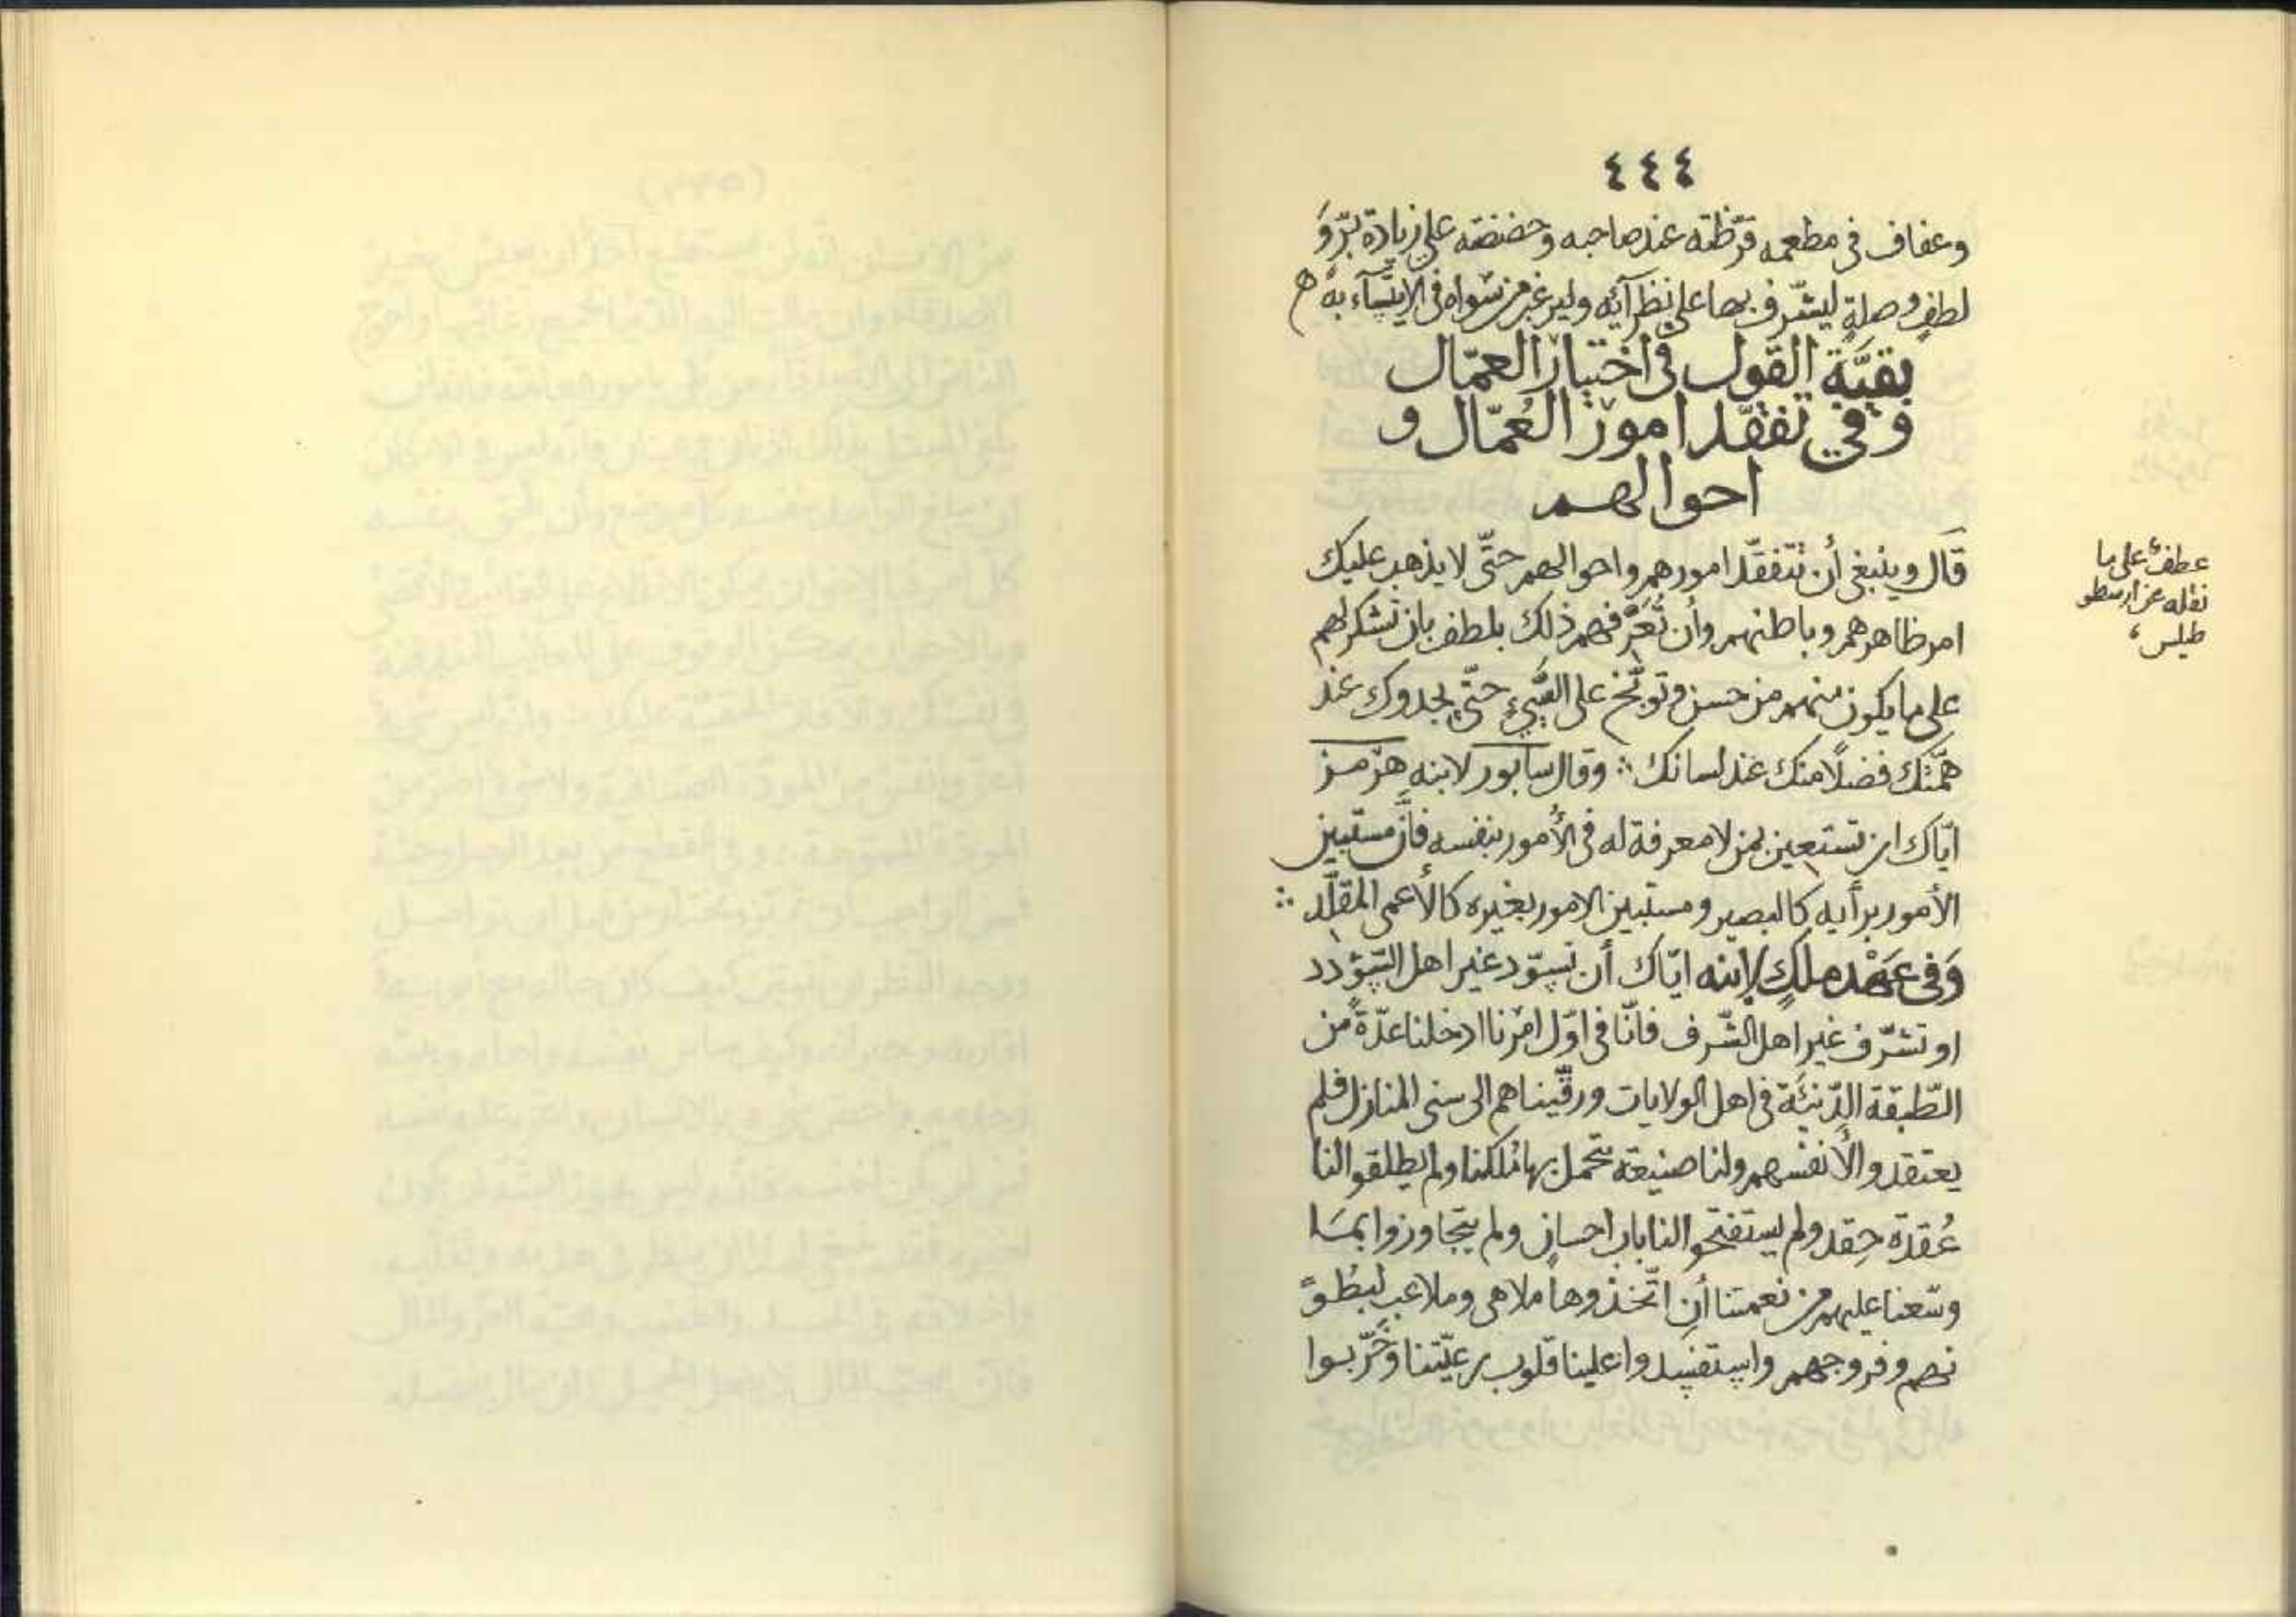 ٤٤٤
وعفاف فى مطعمه قرّظته عند صاحبه وحضضته على زيادة برّ وَ
لطفٍ وصلةٍ ليشرّف بها على نظرآئه وليرغب من سواه فى الايتسآء به
بقيّة القول فى اختيار العمّال
وَفي تفقّد امور العُمّال و
احوالهم
قَال وينبغى أن تتفقّد امورهم واحوالهم حتّى لا يذهب عليك
امر ظاهرهم وباطنهم وأن تُعَرّفهم ذلك بلطف بان تشكر لهم
على ما يكون منهم من حسن وتوبّخ على السّيىءِ حتّى يجدوك عند
همّتك فضلًا منك عند لسانك ∴ وقال سابور لابنه هرْمز
ايّاك ان تستعين بمن لا معرفة له فى الأمور بنفسه فانَّ مستبين
الأمور برأيه كالبصير ومستبين الامور بغيره كالأعمى المقلّد ∴
وَفى عَهْد ملكٍ لابنه ايّاك أن تسوّد غير اهل السّؤدد
او تشرّف غير اهل الشّرف فانّا فى اوّل امرنا ادخلنا عدّةً من
الطّبقة الدّنيئَة فى اهل الولايات ورقّيناهم الى سنى المنازل فلم
يعتقدوا لأنفسهم ولنا صنيعة تحمل بها ملكنا ولم يطلقوا لنا
عُقدة حِقد ولم يستفتحوا لنا باب احسانٍ ولم يتجاوزوا بمَا
وسّعنا عليهم من نعمتنا أنِ اتّخذوها ملاهى وملاعب لبُطوً
نهم وفروجهم واستفسدوا علينا قلوب رعيّتنا وَخَرّبوا
عطفٌ على ما
نقله عن ارسطو
طيلس